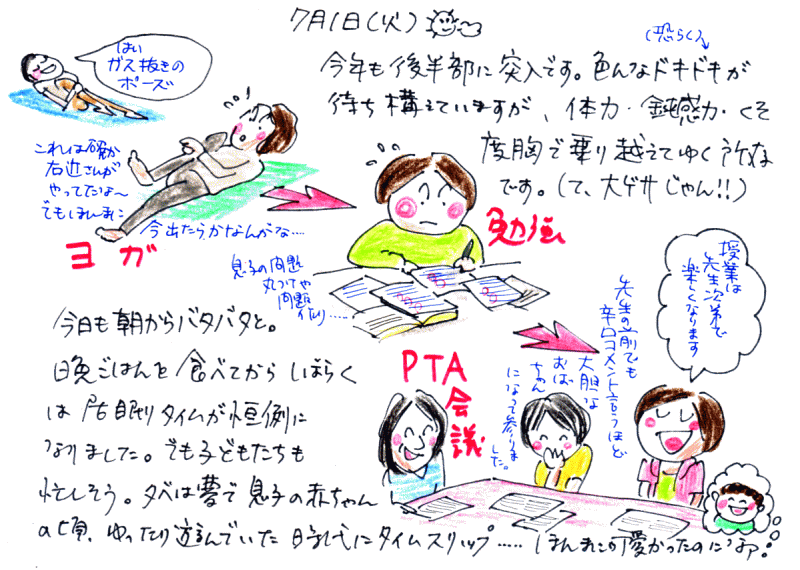 7月1日(火)
(恐らく)
今年も後半部に突入です。色んなドキドキが
待ち構えていますが、体力・鈍感力・くそ
度胸で乗り越えてゆく所存
です。(て、大ゲサじゃん!!)
はい
ガス抜きの
ポーズ
これは確か
右近さんが
やってたよ～
でもほんまに
今出たらかなんがな……
ヨガ
勉強
息子の問題
丸つけや
問題
作り……
PTA
会議
先生の前でも
辛口コメント言うほど
大胆な
おば
ちゃん
になって参りま
した。
授業は
先生次第で
楽しくなります
今日も朝からバタバタと。
晩ごはんを食べてからしばらく
は居眠りタイムが恒例に
なりました。でも子どもたちも
忙しそう。夕べは夢で息子の赤ちゃん
の頃、ゆったり遊んでいた時代にタイムスリップ……ほんまに可愛かったのになァ!